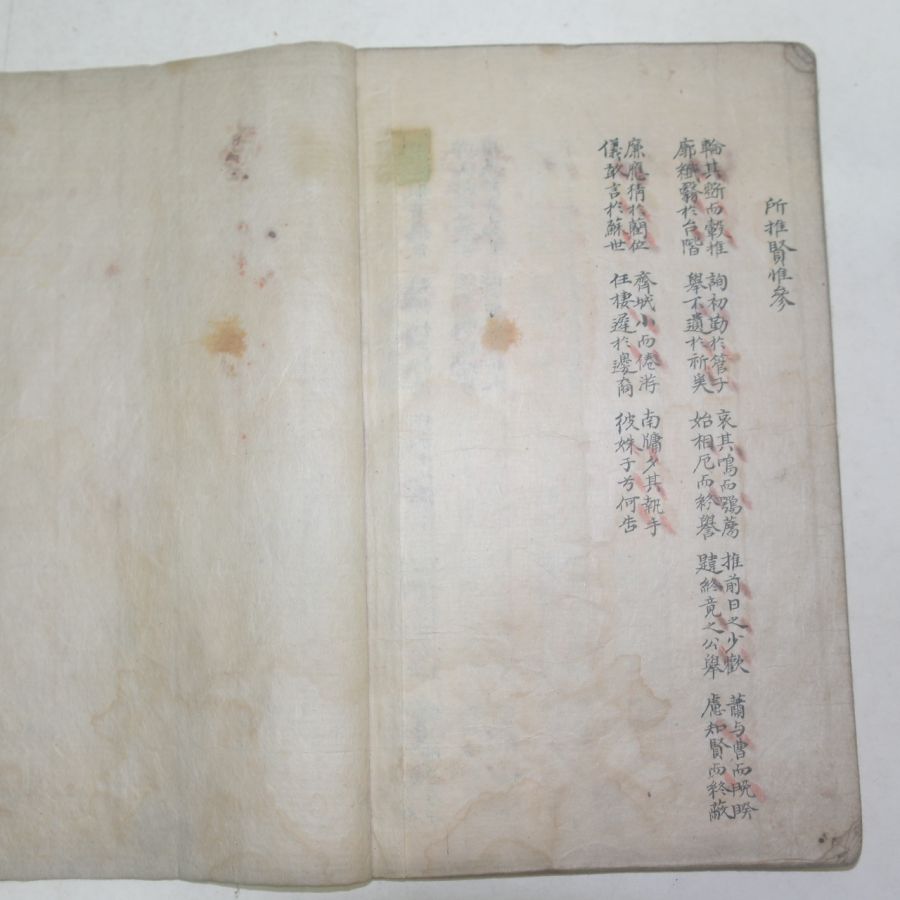 所推賢惟參
輪其斵而轂推
廓讒翳於台階
詢初勤於管子
舉不遺於祈奚
哀其鳴而鶚薦
始相厄而終譽
推前日之少歡
韙終竟之公舉
蕭与曹而晩暌
慮知賢而終蔽
廉應猜於藺位
儀敢言於蘇世
齊城小而倦游
任棲遲於邊裔
南牖夕其執手
彼姝子兮何告